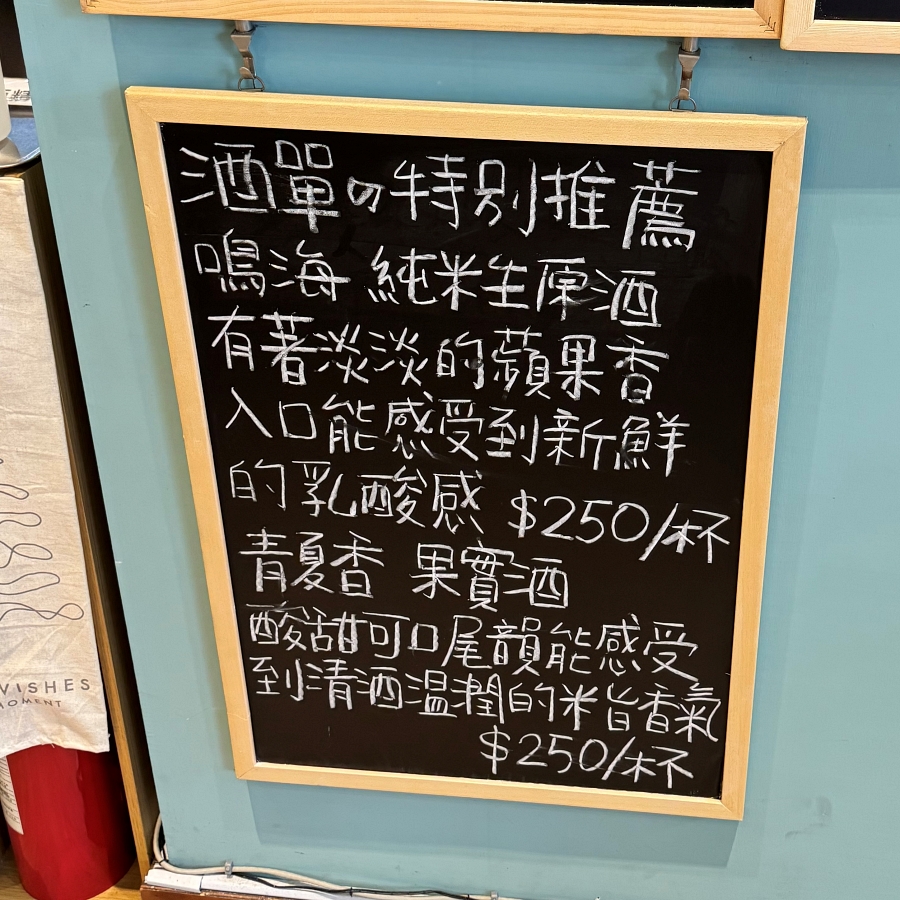 酒單の特別推薦
鳴海 純米生原酒
有著淡淡的蘋果香
入口能感受到新鮮
的乳酸感 $250/杯
青夏香 果實酒
酸甜可口尾韻能感受
到清酒溫潤的米旨香氣
$250/杯
VISHES
MOMENT